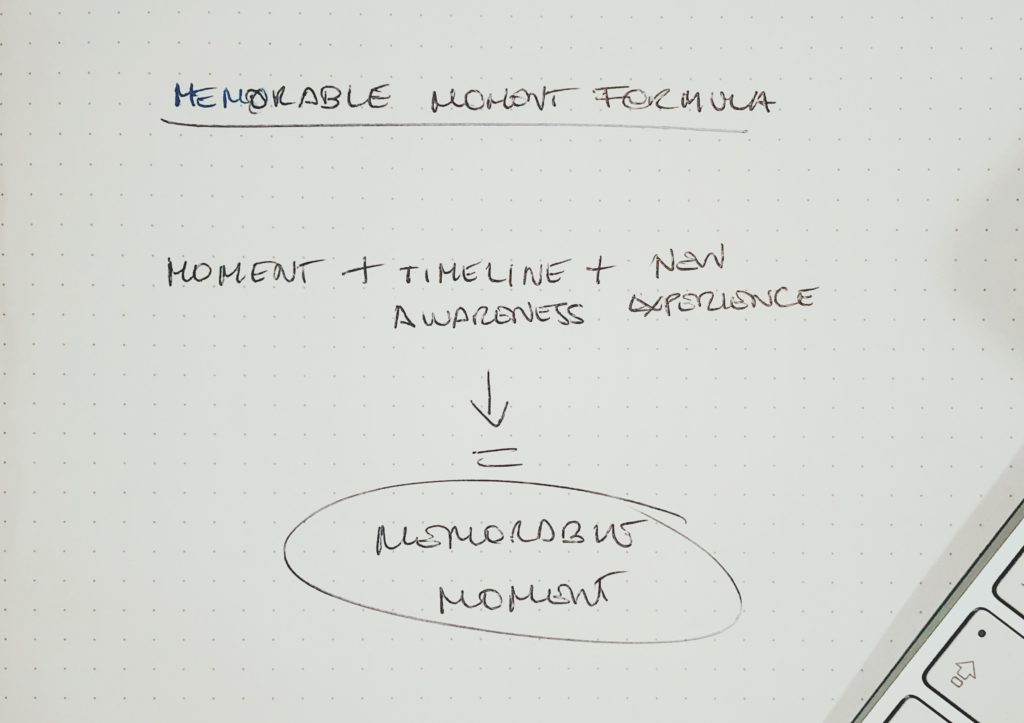 MEMORABLE MOMENT FORMULA
MOMENT + TIMELINE + NEW
AWARENESS EXPERIENCE
=
MEMORABLE
MOMENT